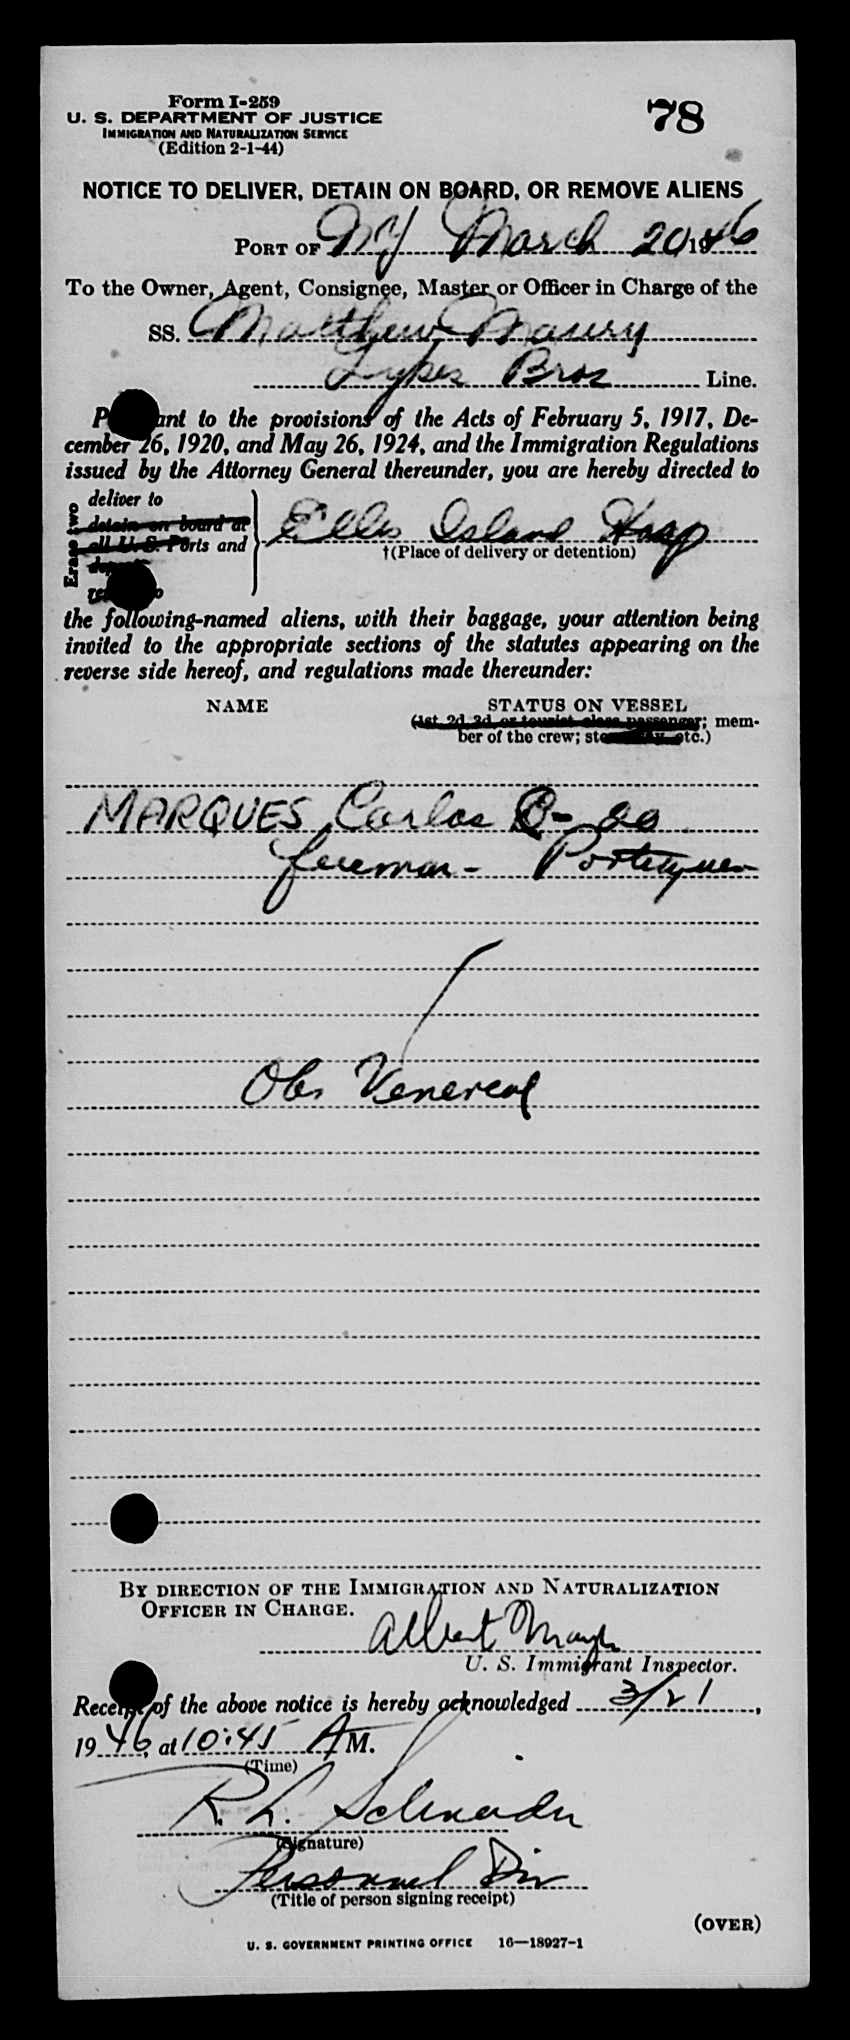 Form I-259
78
U. S. DEPARTMENT OF JUSTICE
IMMIGRATION AND NATURALIZATION SERVICE
(Edition 2-1-44)
NOTICE TO DELIVER, DETAIN ON BOARD, OR REMOVE ALIENS
PORT OF NY March 20 1946
To the Owner, Agent, Consignee, Master or Officer in Charge of the
SS. Matthew Maury
Lykes Bros Line.
P ant to the provisions of the Acts of February 5, 1917, De-
cember 26, 1920, and May 26, 1924, and the Immigration Regulations
issued by the Attorney General thereunder, you are hereby directed to
Erase two
deliver to
detain on board at
all U. S. Ports and
Ellis Island Hosp
†(Place of delivery or detention)
the following-named aliens, with their baggage, your attention being
invited to the appropriate sections of the statutes appearing on the
reverse side hereof, and regulations made thereunder:
NAME STATUS ON VESSEL
(1st, 2d, 3d, or tourist class passenger; mem-
ber of the crew; etc.)
MARQUES Carlos
fireman - Portuguese
Obs Venereal
BY DIRECTION OF THE IMMIGRATION AND NATURALIZATION
OFFICER IN CHARGE.
Albert
U. S. Immigrant Inspector.
Receipt of the above notice is hereby acknowledged 3/21,
1946, at 10:45 A M.
(Time)
R. L. Schneider
(Signature)
Personnel Div
(Title of person signing receipt)
(OVER)
U. S. GOVERNMENT PRINTING OFFICE 16—18927-1